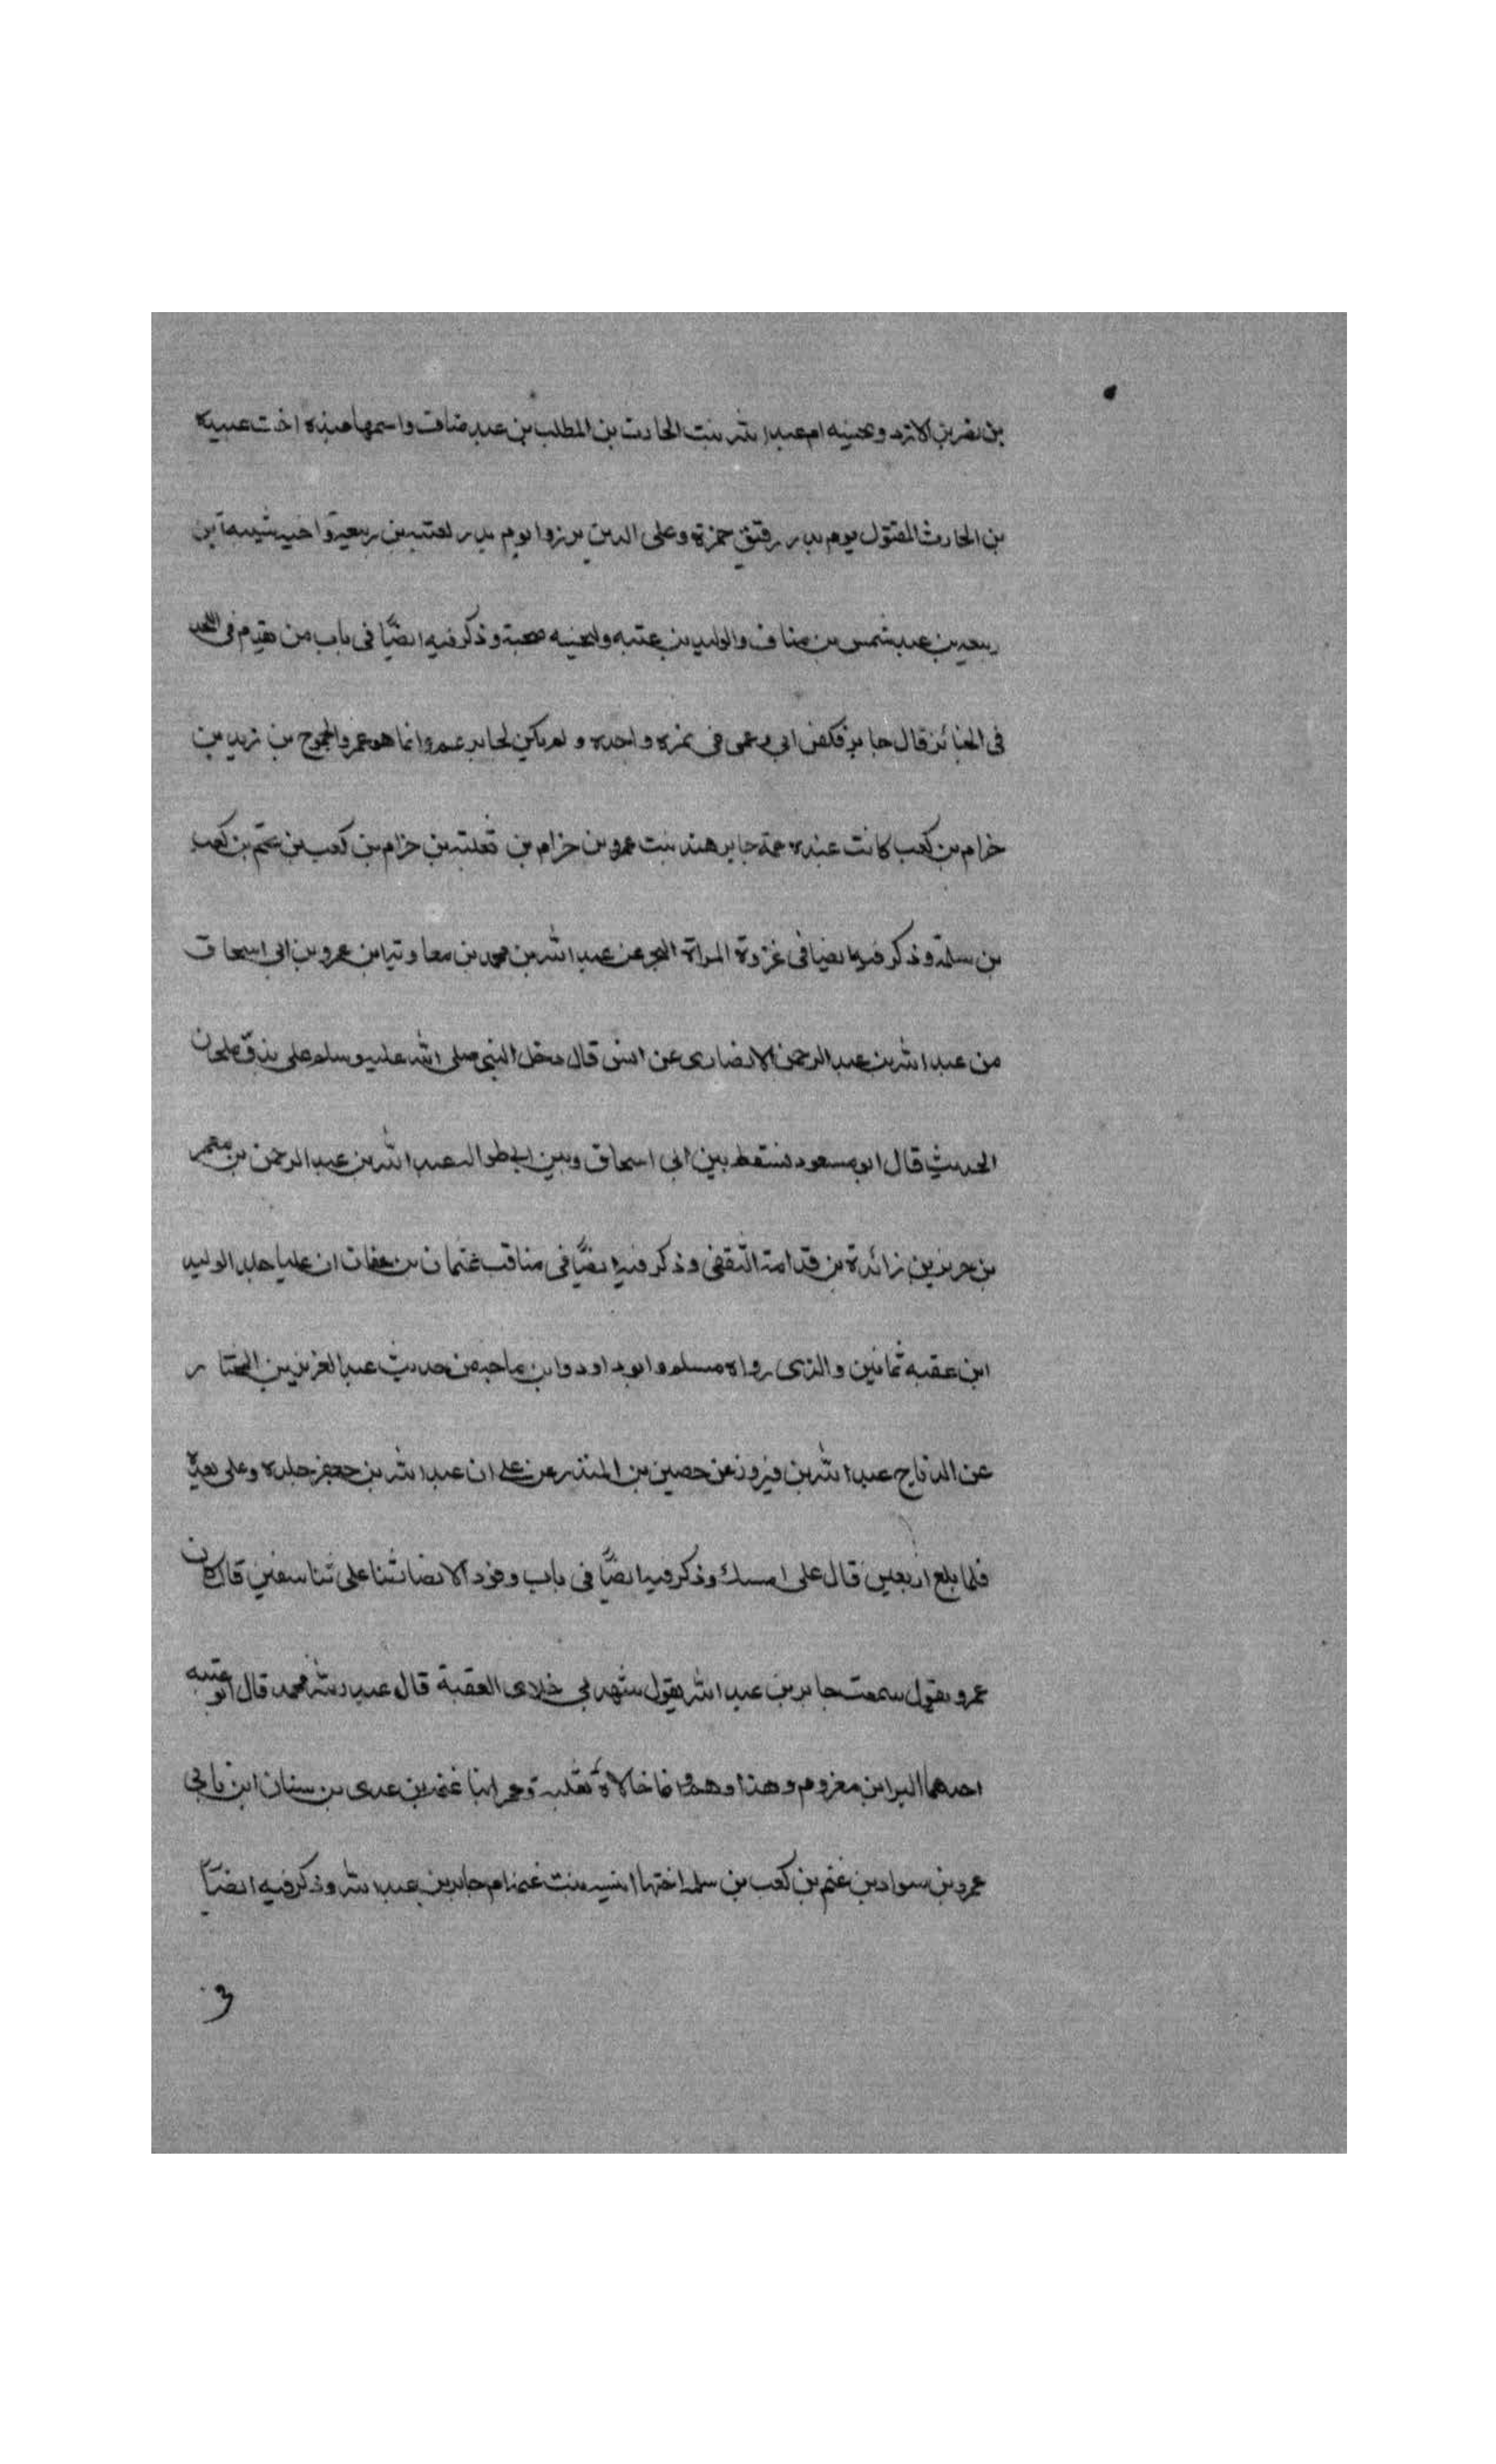 بن نصر بن الازد وبحينه ام عبد الله بنت الحارث بن المطلب بن عبد مناف واسمها عبده اخت عبيده
بن الحارث المقتول يوم بدر رفيق حمزة وعلى الدين برزوا يوم بدر لعتبه بن ربيعة واخيه شيبه بن
ربيعه بن عبد شمس بن مناف والوليد بن عتبه ولبحينه صحبة وذكر فيه ايضًا فى باب من يقدم فى اللحد
فى الجنائز قال جابر فكفن ابى وعمى فى نمره واحده ولم يكن لجابر عم وانما هو عمرو الجموح بن زيد بن
حرام بن كعب كانت عنده عمة جابر هند بنت عمرو بن حزام بن ثعلبته بن حزام بن كعب بن غنم بن كعب
بن سلمة وذكر فيه ايضا فى غزوة المراة البحر عن عبد الله بن محمد بن معاوية ابن عمرو بن ابى اسحاق
من عبد الله بن عبد الرحمن الانصارى عن انس قال دخل النبى صلى الله عليه وسلم على ملحان
الحديث قال ابو مسعود سقط بين ابى اسحاق وبين ابى طواله عبد الله بن عبد الرحمن بن معمر
بن زائدة بن قدامة الثقفى وذكر فيه ايضًا فى مناقب عثمان بن عفان ان عليا جلد الوليد
ابن عقبه ثمانين والذى رواه مسلم وابو داود وابن ماجه من حديث عبد العزيز بن المختار
عن الداناج عبد الله بن فيروز عن حصين بن المنذر عن على ان عبد الله بن جعفر جلده وعلى يعده
فلما بلغ اربعين قال على امسك وذكر فيه ايضًا فى باب وفود الانصار ثنا على ثنا سفين قال كان
عمرو يقول سمعت جابر بن عبد الله يقول شهد بى خلاى العقبة قال عبد الله محمد قال ابو عتبه
احدهما البرا بن معزوم وهذا وهم وانما خالاه ثعلبة وعمرو ابنا غنمه بن عدى بن سنان ابن نابى
عمرو بن سواد بن غنم بن كعب بن سلمه اختها انسيه بنت غنمه ام جابر بن عبد الله وذكر فيه ايضًا